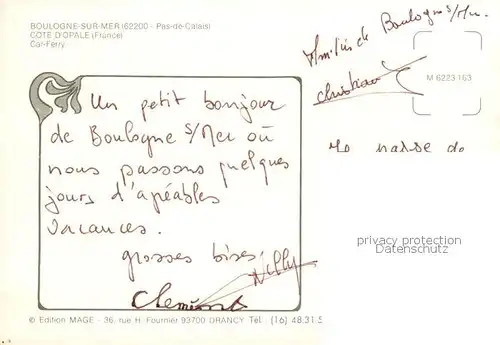 BOULOGNE-SUR-MER (62200 - Pas-de-Calais)
COTE D'OPALE (France)
Car-Ferry
Amitiés de Boulogne s/Mer.
Christian
M 6223 163
Un petit bonjour
de Boulogne s/Mer où
nous passons quelques
jours d'agéables
vacances.
grosses bises,
Nelly
Clément
privacy protection
Datenschutz
© Edition MAGE - 36, rue H. Fournier 93700 DRANCY Tél. (16) 48.31.5